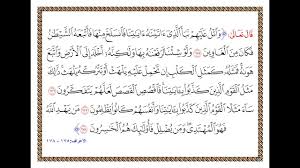 قَالَ تَعَالَىٰ: ﴿ وَٱتْلُ عَلَيْهِمْ نَبَأَ ٱلَّذِىٓ ءَاتَيْنَٰهُ ءَايَٰتِنَا فَٱنسَلَخَ مِنْهَا فَأَتْبَعَهُ ٱلشَّيْطَٰنُ
فَكَانَ مِنَ ٱلْغَاوِينَ ١٧٥ وَلَوْ شِئْنَا لَرَفَعْنَٰهُ بِهَا وَلَٰكِنَّهُۥٓ أَخْلَدَ إِلَى ٱلْأَرْضِ وَٱتَّبَعَ
هَوَىٰهُ فَمَثَلُهُۥ كَمَثَلِ ٱلْكَلْبِ إِن تَحْمِلْ عَلَيْهِ يَلْهَثْ أَوْ تَتْرُكْهُ يَلْهَث ذَّٰلِكَ
مَثَلُ ٱلْقَوْمِ ٱلَّذِينَ كَذَّبُوا۟ بِـَٔايَٰتِنَا فَٱقْصُصِ ٱلْقَصَصَ لَعَلَّهُمْ يَتَفَكَّرُونَ ١٧٦
سَآءَ مَثَلًا ٱلْقَوْمُ ٱلَّذِينَ كَذَّبُوا۟ بِـَٔايَٰتِنَا وَأَنفُسَهُمْ كَانُوا۟ يَظْلِمُونَ ١٧٧ مَن يَهْدِ ٱللَّهُ
فَهُوَ ٱلْمُهْتَدِى وَمَن يُضْلِلْ فَأُو۟لَٰٓئِكَ هُمُ ٱلْخَٰسِرُونَ ١٧٨ ﴾
الأعراف: ١٧٥ - ١٧٨